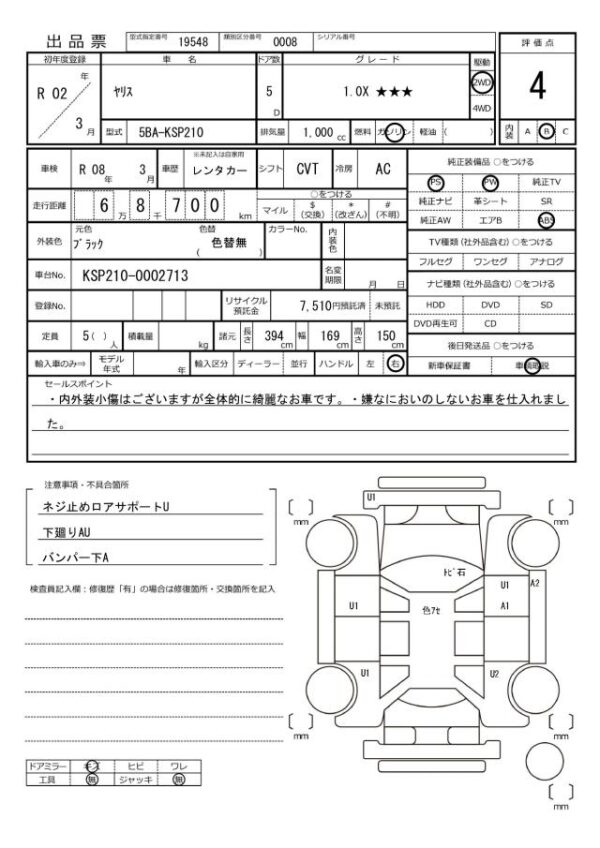 出品票 型式指定番号 19548 類別区分番号 0008 シリアル番号
初年度登録 車名 ドア数 グレード 駆動 評価点
R 02 年 3 月 ヤリス 5 D 1.0X ★★★ 2WD 4WD 4
型式 5BA-KSP210 排気量 1,000 cc 燃料 ガソリン 軽油 ( ) 内装 A B C
車検 R 08 年 3 月 車歴 ※未記入は自家用 レンタカー シフト CVT 冷房 AC
走行距離 6 万 8 千 7 0 0 km ○をつける マイル $ (交換) * (改ざん) # (不明)
外装色 元色 ブラック 色替 色替無 ( ) カラーNo. 内装色
車台No. KSP210-0002713 名変期限 月 日
登録No. リサイクル預託金 7,510円預託済 未預託
定員 5( ) 人 積載量 kg 諸元 長さ 394 cm 幅 169 cm 高さ 150 cm
輸入車のみ⇒ モデル年式 年 輸入区分 ディーラー 並行 ハンドル 左 右
純正装備品 ○をつける
PS PW 純正TV
純正ナビ 革シート SR
純正AW エアB ABS
TV種類 (社外品含む) ○をつける
フルセグ ワンセグ アナログ
ナビ種類 (社外品含む) ○をつける
HDD DVD SD
DVD再生可 CD
後日発送品 ○をつける
新車保証書 車輌取説
セールスポイント
・内外装小傷はございますが全体的に綺麗なお車です。・嫌なにおいのしないお車を仕入れまし
た。
注意事項・不具合箇所
ネジ止めロアサポートU
下廻りAU
バンパー下A
検査員記入欄：修復歴「有」の場合は修復箇所・交換箇所を記入
U1
mm mm
トビ石
U1 色アセ U1 A2
A1
U1 U2
mm mm
mm
ドアミラー キズ ヒビ ワレ
工具 無 ジャッキ 無